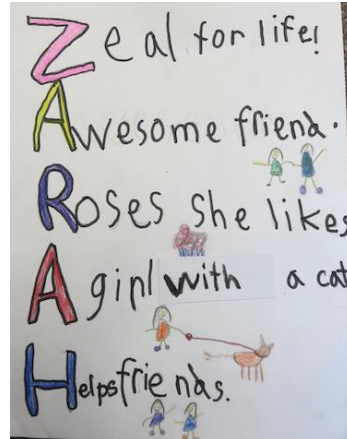 Zeal for life!
Awesome friend.
Roses she likes
A girl with a cat
Helps friends.